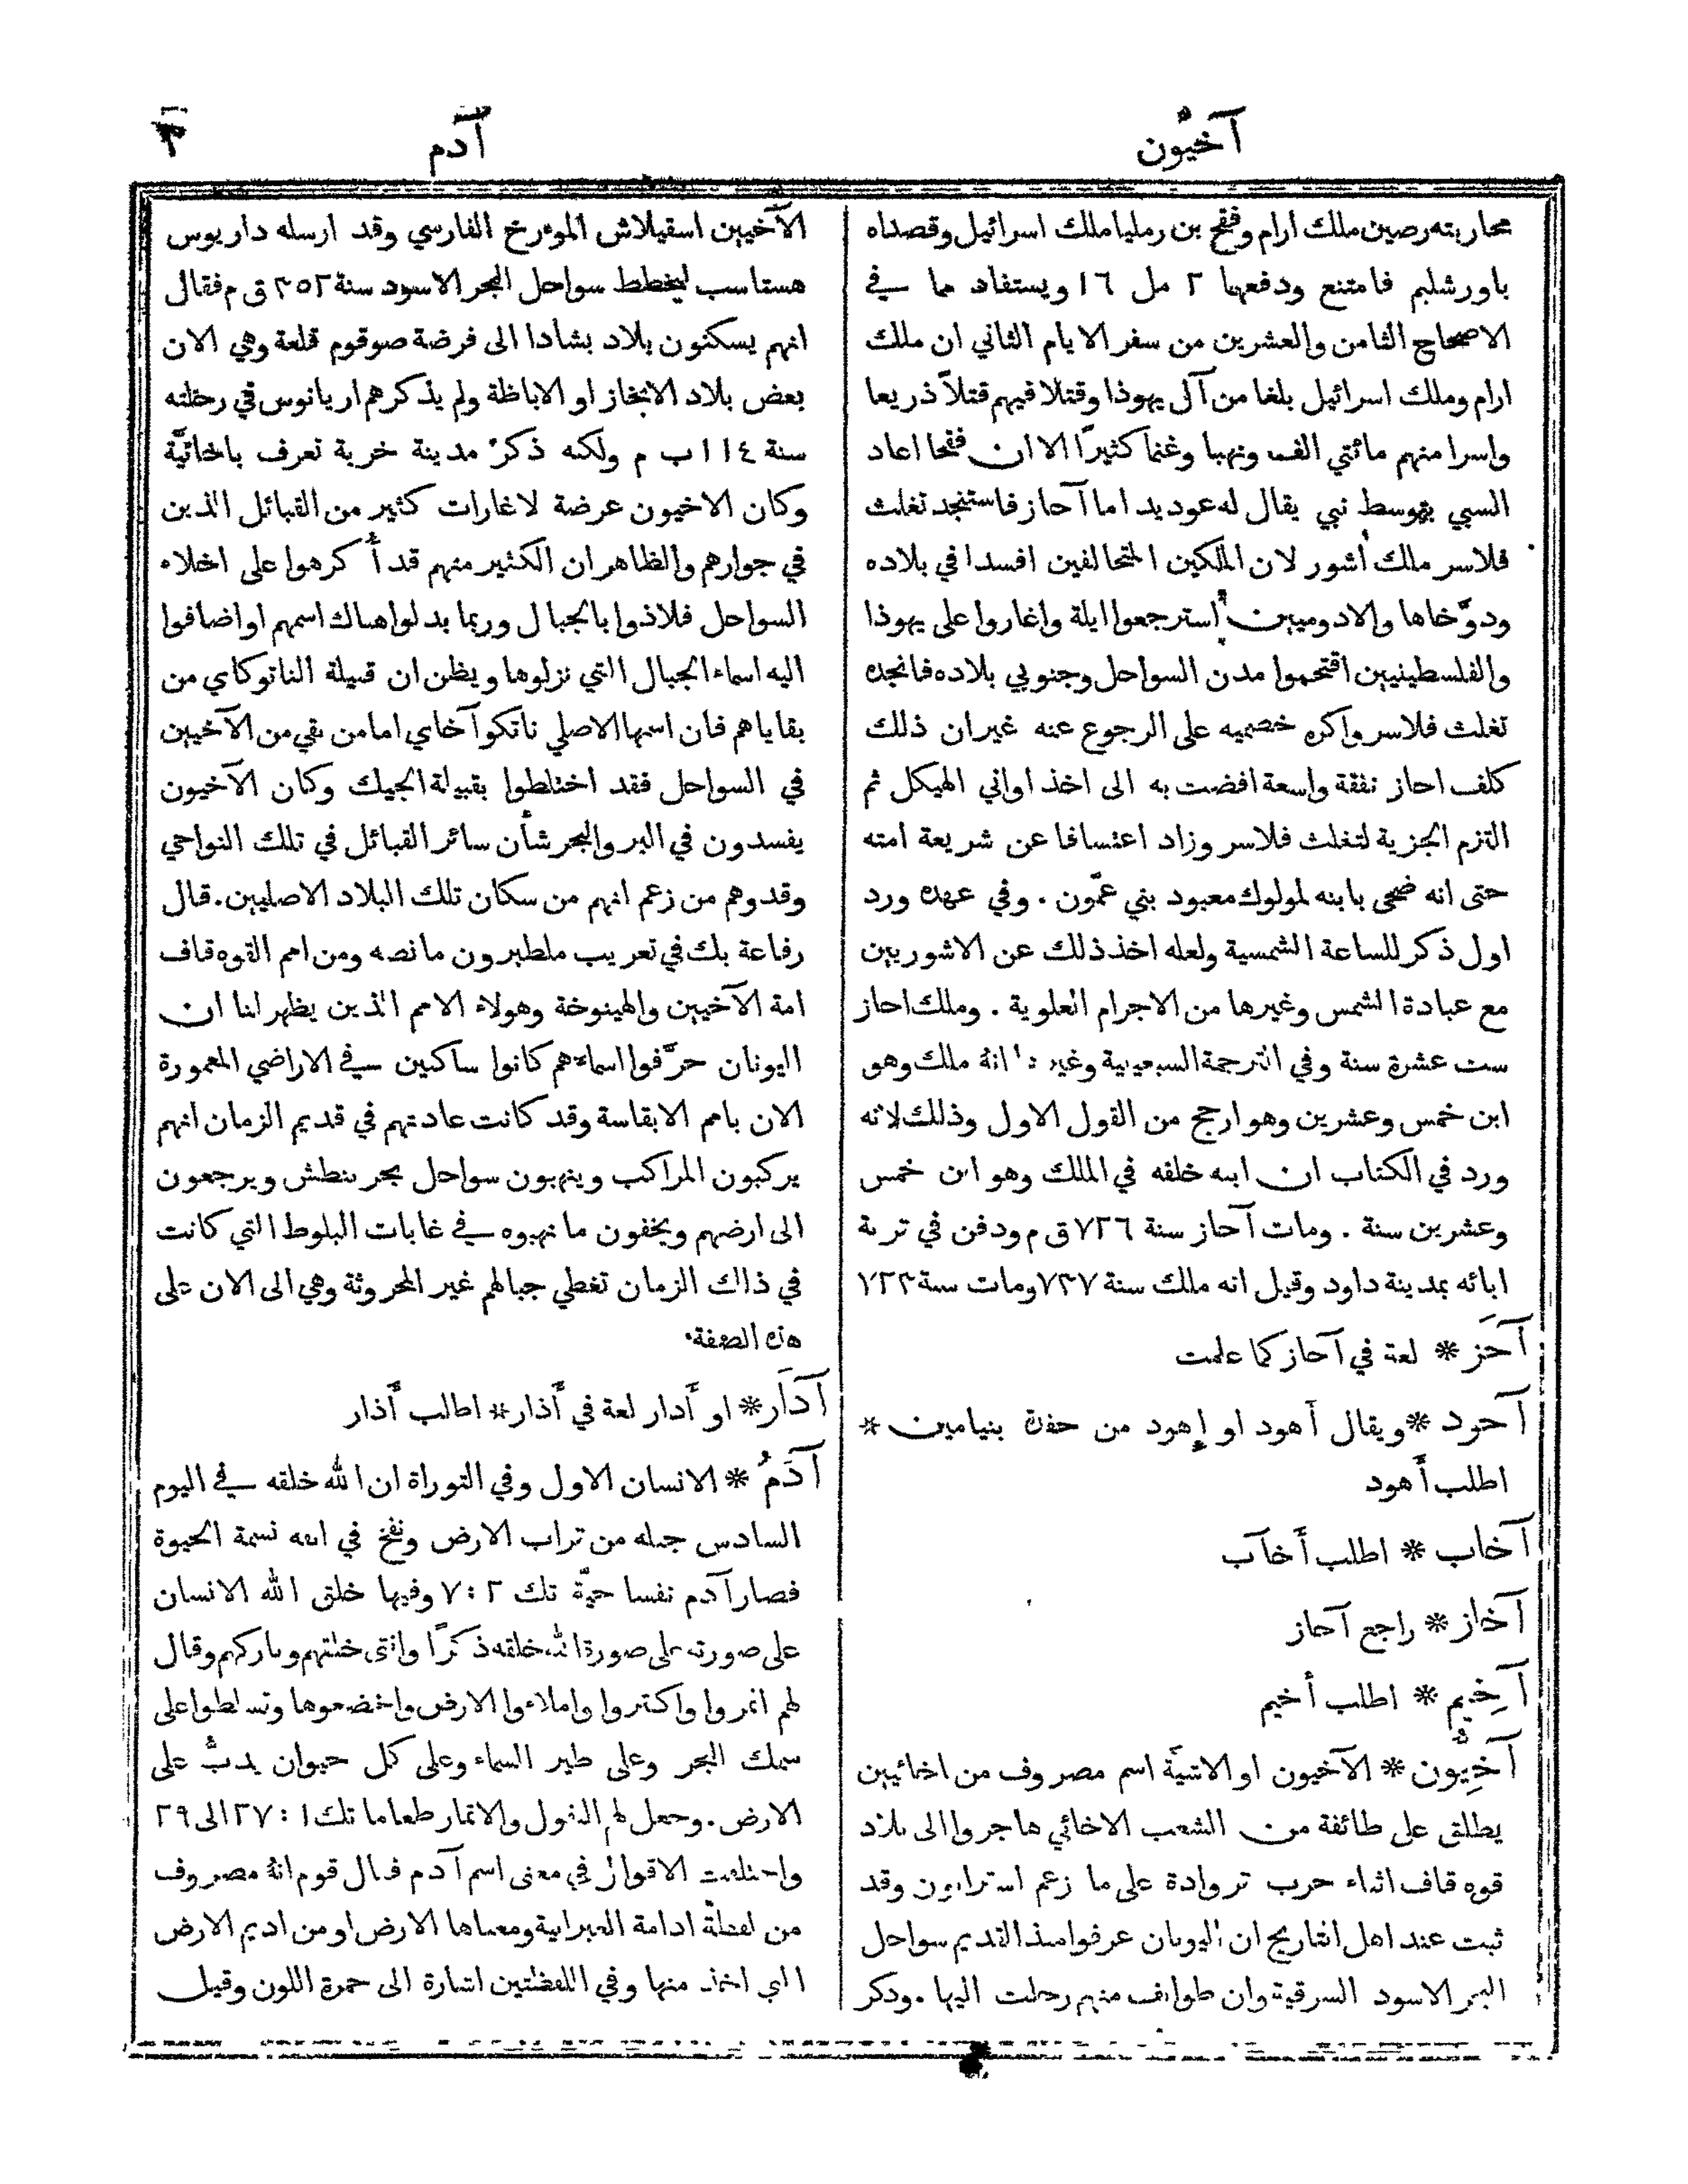 آخيون
آدم
٣
محاربته رصين ملك ارام وفقح بن رمليا ملك اسرائيل وقصداه
باورشليم فامتنع ودفعهما ٢ مل ١٦ ويستفاد مما في
الاصحاح الثامن والعشرين من سفر الايام الثاني ان ملك
ارام وملك اسرائيل بلغا من آل يهوذا وقتلا فيهم قتلاً ذريعا
واسرا منهم مائتي الف ونهبا وغنما كثيرًا الا ان فقحا اعاد
السبي بتوسط نبي يقال له عوديد اما آحاز فاستنجد تغلث
فلاسر ملك اشور لان الملكين المتحالفين افسدا في بلاده
ودوَّخاها والادوميين استرجعوا ايلة واغاروا على يهوذا
والفلسطينيين اقتحموا مدن السواحل وجنوبي بلاده فانجده
تغلث فلاسر واكره خصميه على الرجوع عنه غير ان ذلك
كلف احاز نفقة واسعة افضت به الى اخذ اواني الهيكل ثم
التزم الجزية لتغلث فلاسر وزاد اعتسافا عن شريعة امته
حتى انه ضحى بابنه لمولوك معبود بني عمّون . وفي عهده ورد
اول ذكر للساعة الشمسية ولعله اخذ ذلك عن الاشوريين
مع عبادة الشمس وغيرها من الاجرام العلوية . وملك احاز
ست عشرة سنة وفي الترجمة السبعينية وغيرها انهُ ملك وهو
ابن خمس وعشرين وهو ارجح من القول الاول وذلك لانه
ورد في الكتاب ان ابنه خلفه في الملك وهو ابن خمس
وعشرين سنة . ومات آحاز سنة ٧٢٦ ق م ودفن في تربة
ابائه بمدينة داود وقيل انه ملك سنة ٧٣٧ ومات سنة ٧٢٣
آحَز * لغة في آحاز كما علمت
آحود * ويقال أهود او إهود من حفدة بنيامين *
اطلب أهود
آخاب * اطلب أخآب
آخاز * راجع آحاز
آخِيم * اطلب أخيم
آخِيُّون * الآخيون او الاشيَّة اسم مصروف من اخائيين
يطلق على طائفة من الشعب الاخائي هاجروا الى بلاد
قوه قاف اثناء حرب تروادة على ما زعم استرابون وقد
ثبت عند اهل التاريخ ان اليونان عرفوا منذ القديم سواحل
البحر الاسود الشرقية وان طوايف منهم رحلت اليها . وذكر
الآخيين اسقيلاش المؤرخ الفارسي وقد ارسله داريوس
هستاسب ليخطط سواحل البحر الاسود سنة ٣٥٢ ق م فقال
انهم يسكنون بلاد بشادا الى فرضة صوقوم قلعة وهي الان
بعض بلاد الابخاز او الاباظة ولم يذكرهم اريانوس في رحلته
سنة ١١٤ ب م ولكنه ذكر مدينة خربة تعرف باخائيَّة
وكان الاخيون عرضة لاغارات كثير من القبائل الذين
في جوارهم والظاهر ان الكثير منهم قد أكرهوا على اخلاء
السواحل فلاذوا بالجبال وربما بدلوا هناك اسمهم او اضافوا
اليه اسماء الجبال التي نزلوها ويظن ان قبيلة الناتوكاي من
بقاياهم فان اسمها الاصلي ناتكو آخاي اما من بقي من الآخيين
في السواحل فقد اختلطوا بقبيلة الجيك وكان الآخيون
يفسدون في البر والبحر شأن سائر القبائل في تلك النواحي
وقد وهم من زعم انهم من سكان تلك البلاد الاصليين . قال
رفاعة بك في تعريب ملطبرون ما نصه ومن امم القوه قاف
امة الآخيين والهينوخة وهولاء الامم الذين يظهر لنا ان
اليونان حرَّفوا اسماءهم كانوا ساكنين في الاراضي المعمورة
الان بامم الابقاسة وقد كانت عادتهم في قديم الزمان انهم
يركبون المراكب وينهبون سواحل بحر بنطش ويرجعون
الى ارضهم ويخفون ما نهبوه في غابات البلوط التي كانت
في ذاك الزمان تغطي جبالهم غير المحروثة وهي الى الان على
هذه الصفة .
آدَار * او أدار لغة في أذار * اطلب أذار
آدَمُ * الانسان الاول وفي التوراة ان الله خلقه في اليوم
السادس جبله من تراب الارض ونفخ في انفه نسمة الحيوة
فصار آدم نفسا حيَّة تك ٢ : ٧ وفيها خلق الله الانسان
على صورته على صورة الله خلقه ذكرًا وانثى خلقهم وباركهم وقال
لهم اثمروا واكثروا واملاءوا الارض واخضعوها وتسلطوا على
سمك البحر وعلى طير السماء وعلى كل حيوان يدبُّ على
الارض . وجعل لهم البقول والاثمار طعاما تك ١ : ٢٧ الى ٢٩
واختلفت الاقوال في معنى اسم آدم فقال قوم انهُ مصروف
من لفظة ادامة العبرانية ومعناها الارض او من اديم الارض
التي اخذ منها وفي اللفظتين اشارة الى حمرة اللون وقيل